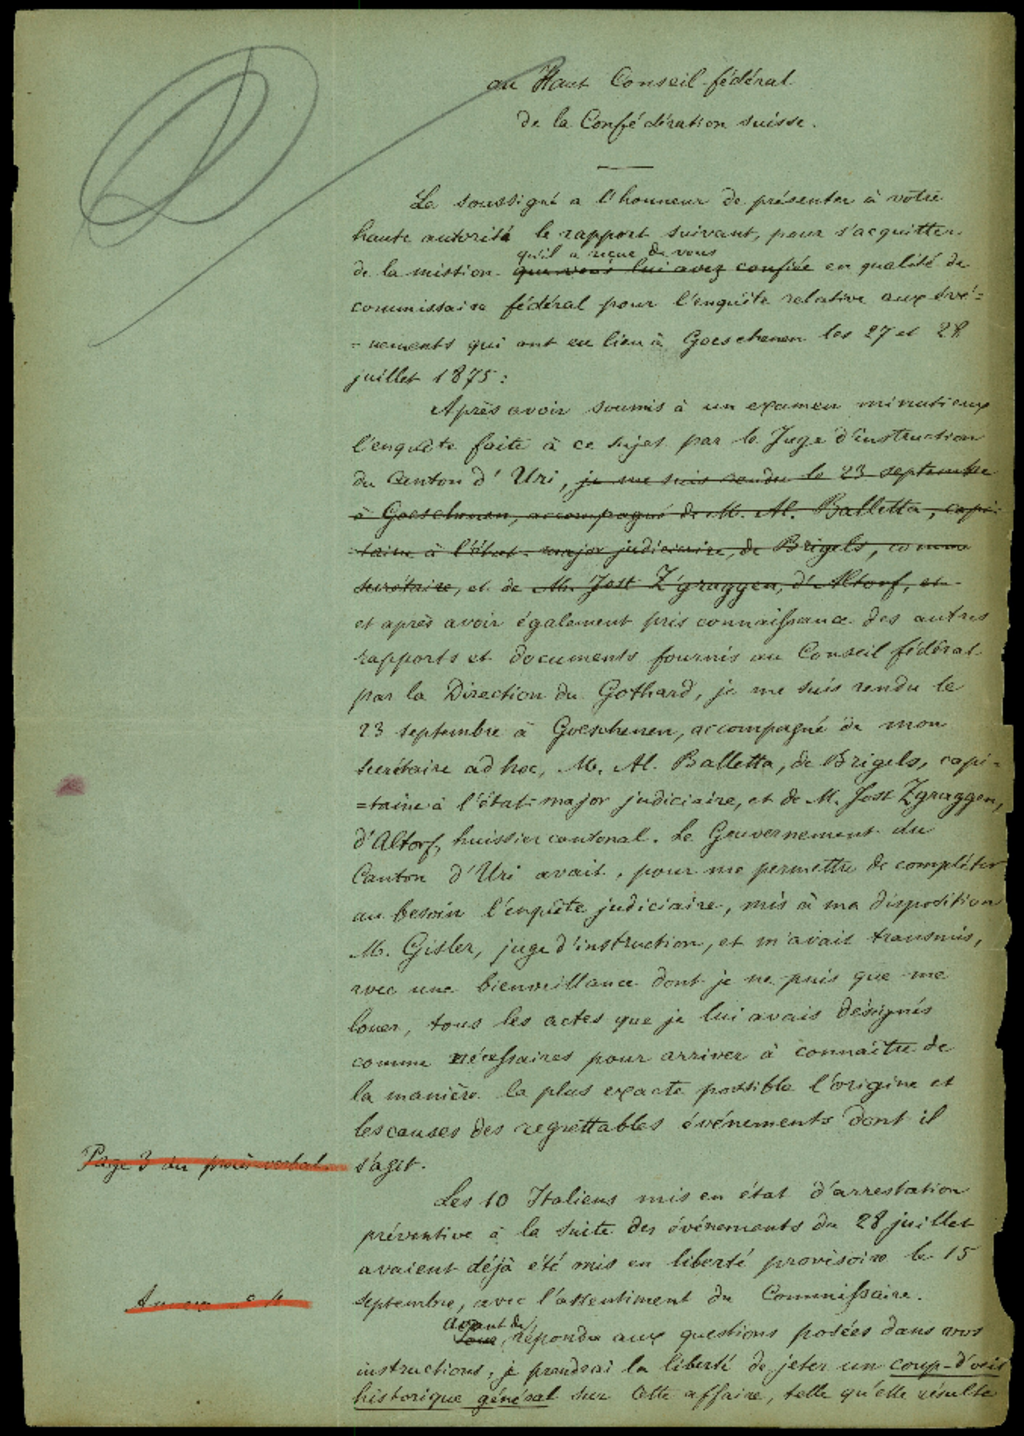 au Haut Conseil-fédéral
de la Confédération suisse.
Le soussigné a l'honneur de présenter à votre
haute autorité le rapport suivant, pour s'acquitter
qu'il a reçue de vous
de la mission que vous lui avez confiée en qualité de
commissaire fédéral pour l'enquête relative aux évé=
=nements qui ont eu lieu à Goeschenen les 27 et 28
juillet 1875:
Après avoir soumis à un examen minutieux
l'enquête faite à ce sujet par le Juge d'instruction
du Canton d'Uri, je me suis rendu le 23 septembre
à Goeschenen, accompagné de M. Al. Balletta, capi=
=taine à l'état-major judiciaire, de Brigels, comme
secrétaire, et de M. Jost Zgraggen, d'Altorf, et
et après avoir également pris connaissance des autres
rapports et documents fournis au Conseil fédéral
par la Direction du Gothard, je me suis rendu le
23 septembre à Goeschenen, accompagné de mon
secrétaire ad hoc, M. Al. Balletta, de Brigels, capi=
=taine à l'état-major judiciaire, et de M. Jost Zgraggen,
d'Altorf, huissier cantonal. Le Gouvernement du
Canton d'Uri avait, pour me permettre de compléter
au besoin l'enquête judiciaire, mis à ma disposition
M. Gisler, juge d'instruction, et m'avait transmis,
avec une bienveillance dont je ne puis que me
louer, tous les actes que je lui avais désignés
comme nécessaires pour arriver à connaître de
la manière la plus exacte possible l'origine et
les causes des regrettables événements dont il
Page 3 du procès-verbal. s'agit.
Les 10 Italiens mis en état d'arrestation
préventive à la suite des événements du 28 juillet
avaient déjà été mis en liberté provisoire le 15
septembre, avec l'assentiment du Commissaire.
Avant de
répondre aux questions posées dans vos
instructions, je prendrai la liberté de jeter un coup-d'oeil
historique général sur cette affaire, telle qu'elle résulte